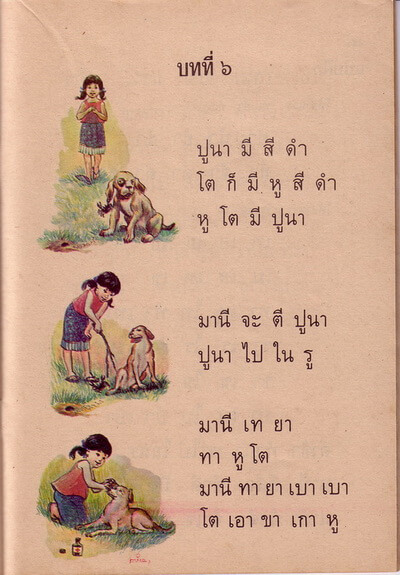 บทที่ ๖
ปูนา มี สี ดำ
โต ก็ มี หู สี ดำ
หู โต มี ปูนา
มานี จะ ตี ปูนา
ปูนา ไป ใน รู
มานี เท ยา
ทา หู โต
มานี ทา ยา เบา เบา
โต เอา ขา เกา หู